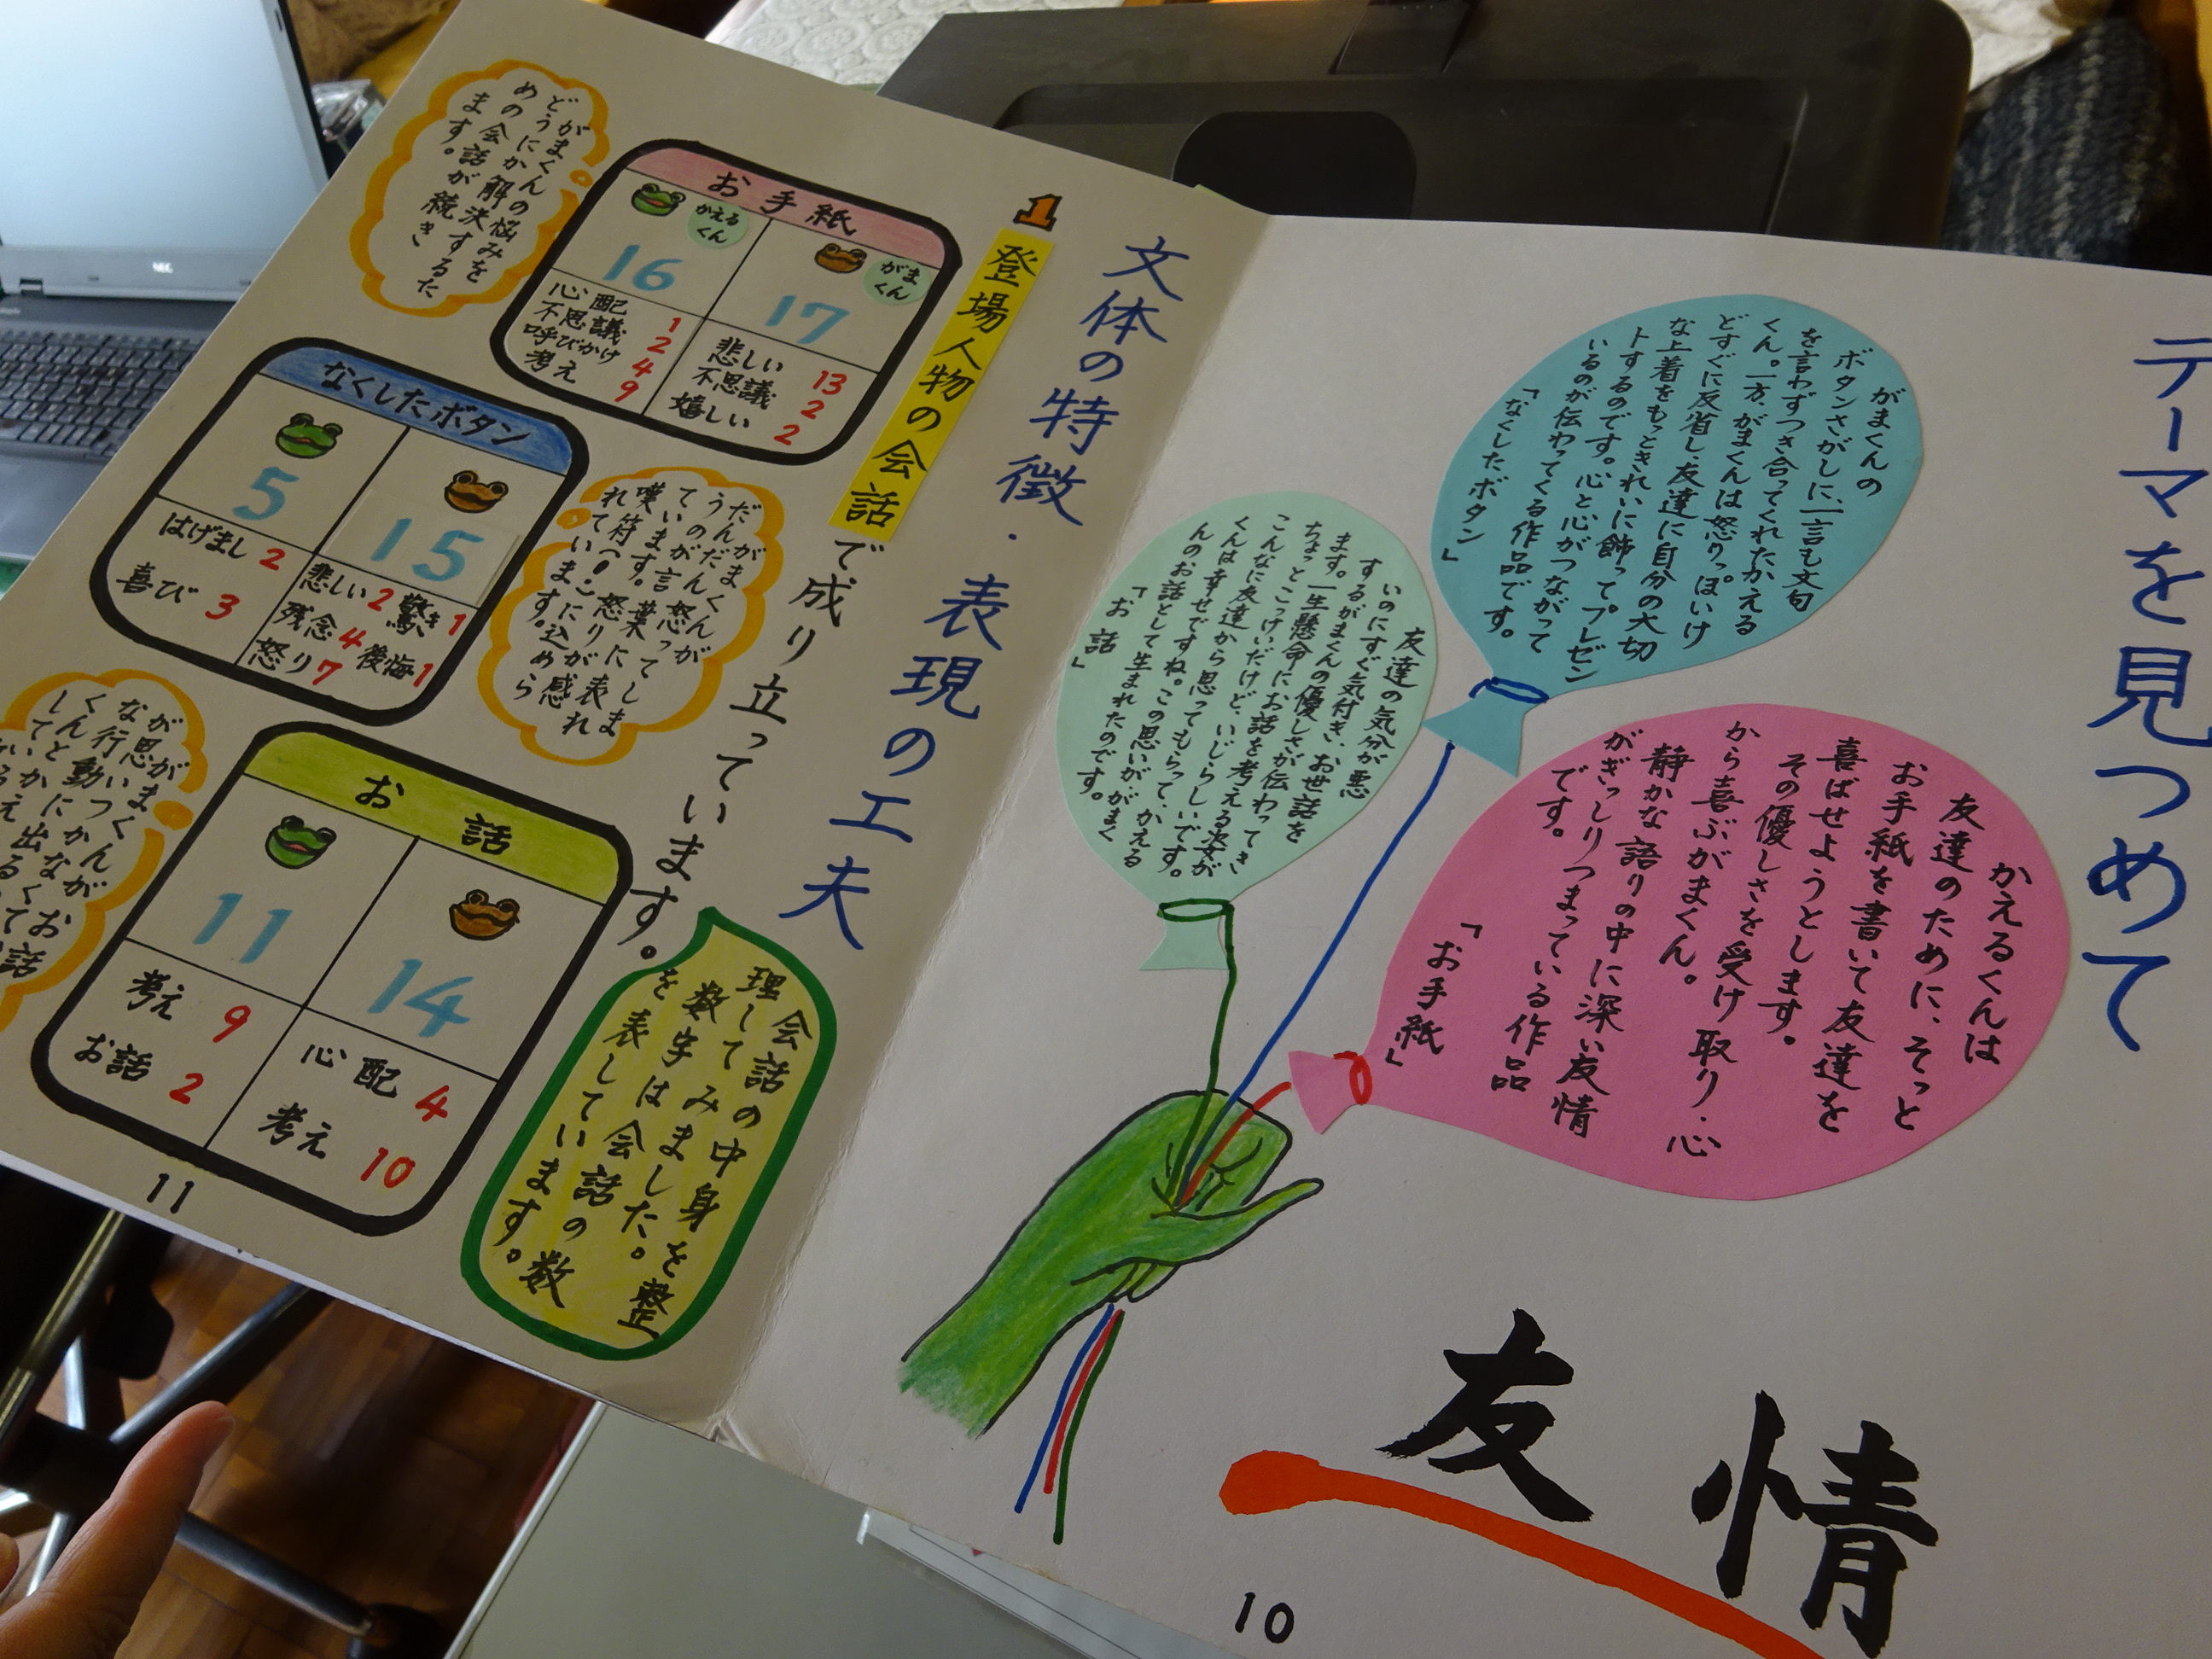 テーマを見つめて
かえるくんは
友達のために、そっと
お手紙を書いて友達を
喜ばせようとします。
その優しさを受け取り、心
から喜ぶがまくん。
静かな語りの中に深い友情
がぎっしりつまっている作品
です。
「お手紙」
がまくんの
ボタンさがしに、一言も文句
を言わずつき合ってくれたかえる
くん。一方、がまくんは怒りっぽいけ
どすぐに反省し、友達に自分の大切
な上着をもっときれいに飾ってプレゼン
トするのです。心と心がつながって
いるのが伝わってくる作品です。
「なくしたボタン」
友達の気分が悪
いのにすぐ気付き、お世話を
するがまくんの優しさが伝わってき
ます。一生懸命にお話を考える姿が
ちょっとこっけいだけど、いじらしいです。
こんなに友達から思ってもらって、かえる
くんは幸せですね。この思いが、がまく
んのお話として生まれたのです。
「お話」
友情
10
文体の特徴・表現の工夫
1
登場人物の会話で成り立っています。
会話の中身を整
理してみました。
数字は会話の数
を表しています。
お手紙
かえるくん
がまくん
16
17
心配 1
不思議 2
呼びかけ 4
考え 9
悲しい 13
不思議 2
嬉しい 2
がまくんの悩みを
どうにか解決するた
めの会話が続き
ます。
なくしたボタン
5
15
はげまし 2
喜び 3
悲しい 2 驚き 1
残念 4 後悔 1
怒り 7
がまくんが
だんだん怒ってしま
うのが言葉に表れ
ています。怒りが感
嘆符(!)に込めら
れています。
お話
11
14
考え 9
お話 2
心配 4
考え 10
がまくんがお話
が思いつかなくて
な行動に出る
くんとかえ
している
11